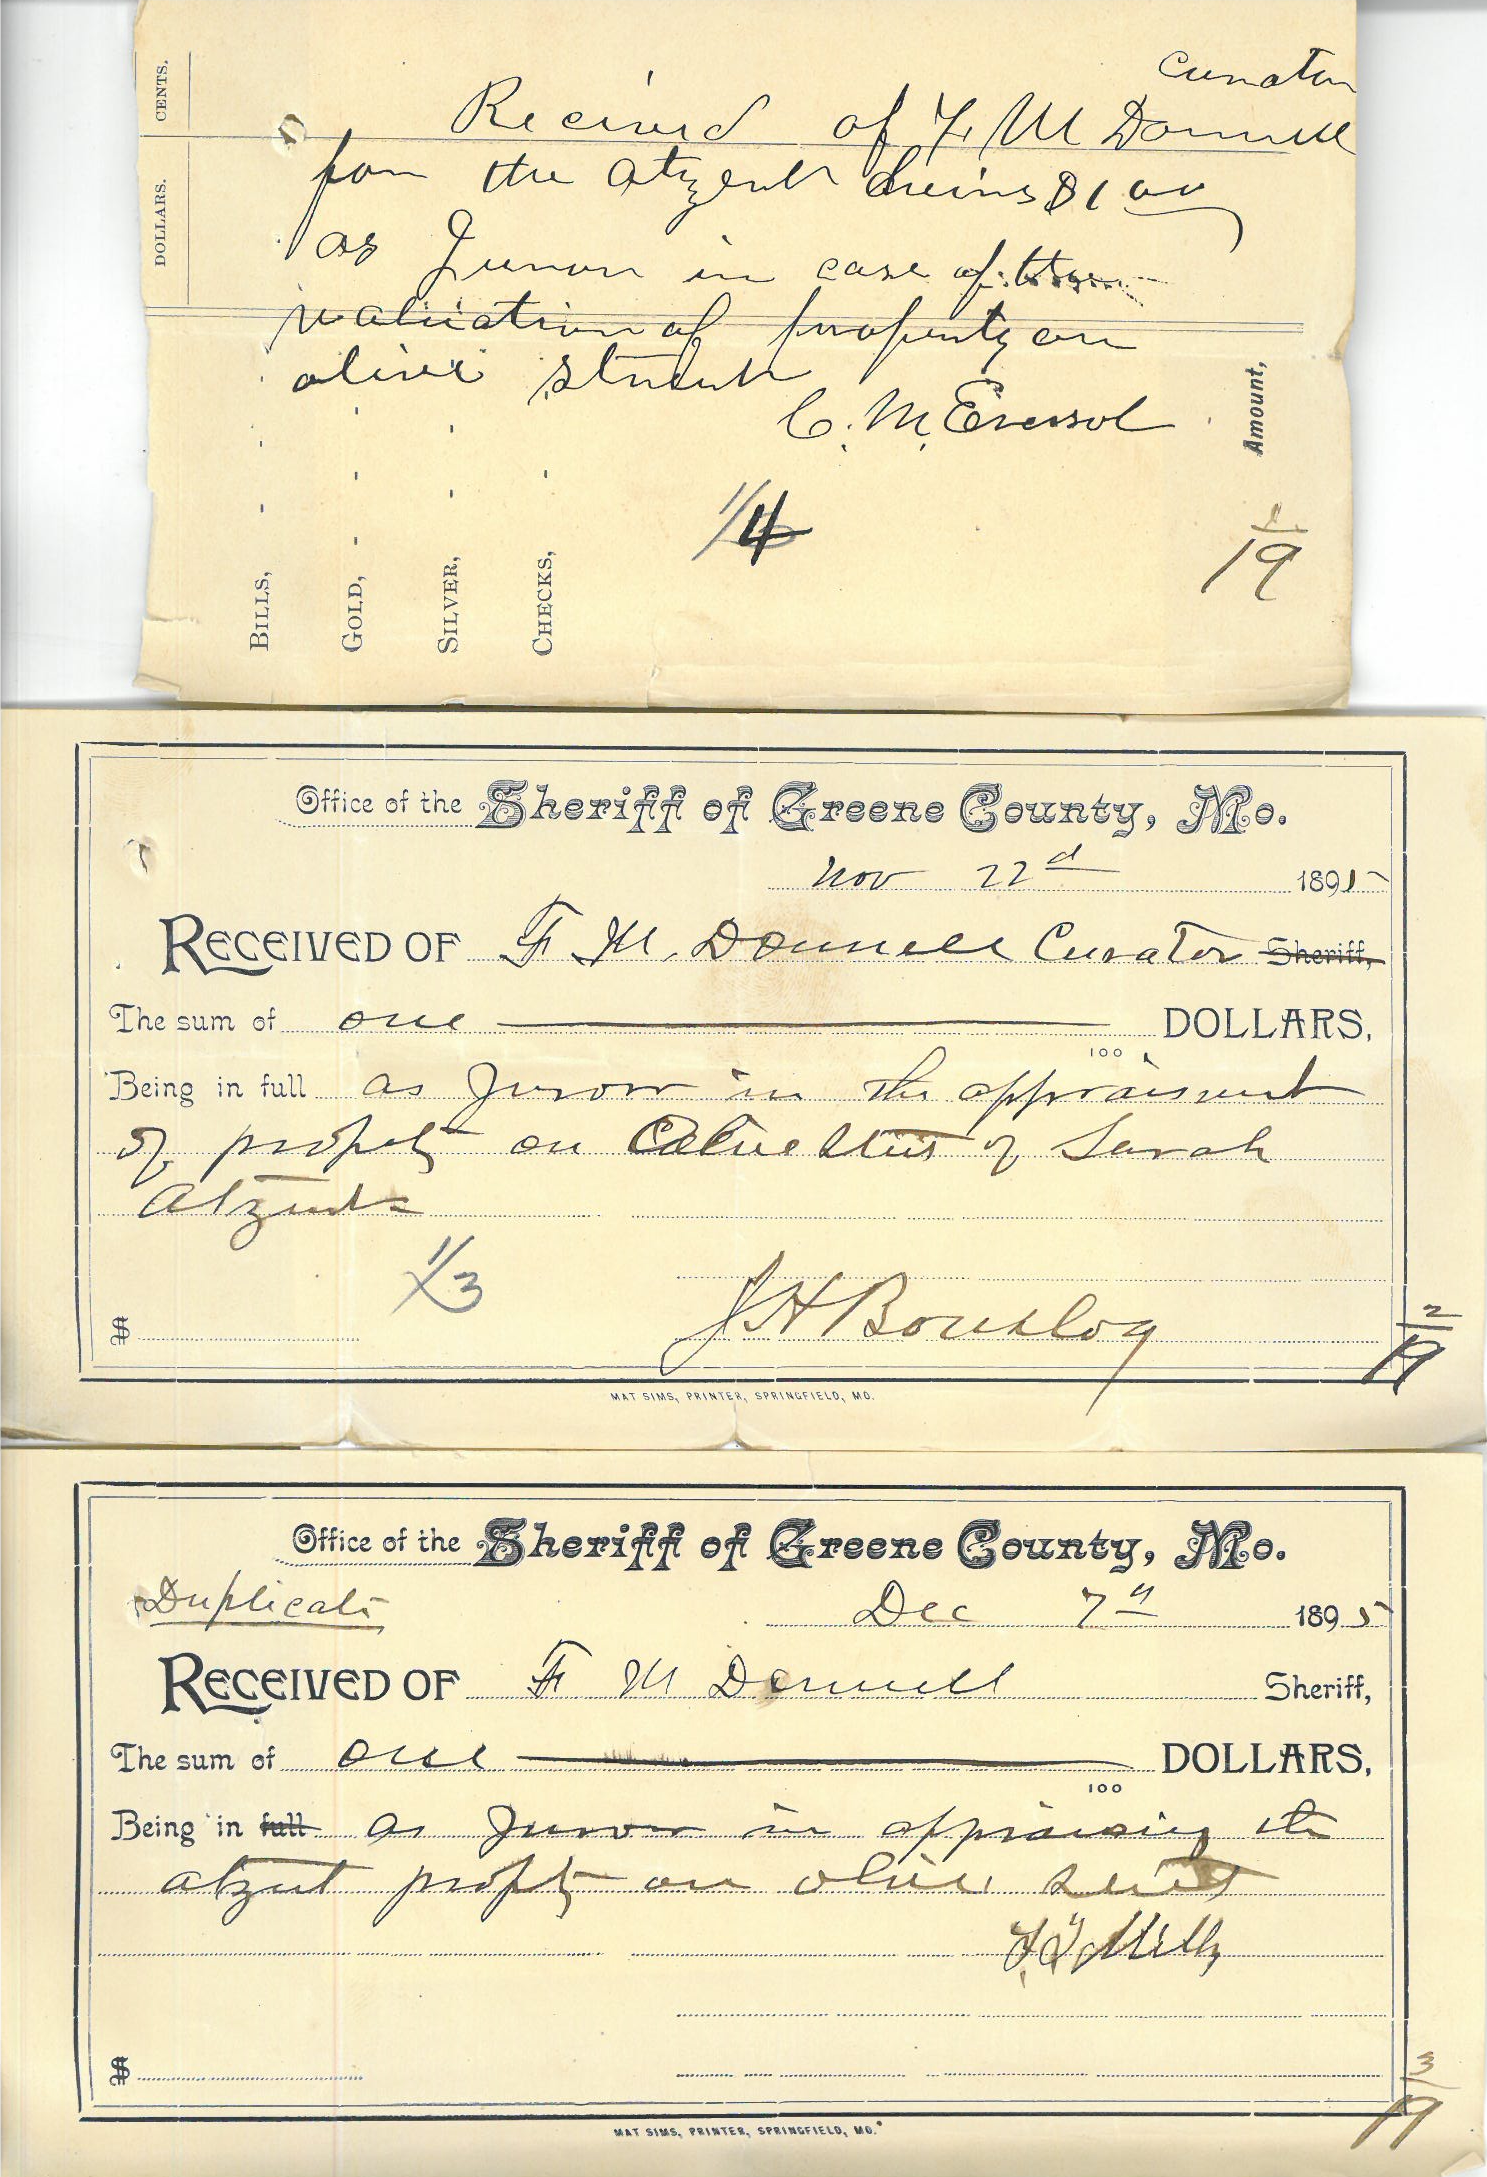 CENTS.
DOLLARS.
curator
Received of F M Donnell
for the Atzert heirs $1 00
as Juror in case of the
valuation of property on
olive Street
C. M. Eversol
Amount,
BILLS,
GOLD,
SILVER,
CHECKS,
1/4
1/19
Office of the Sheriff of Greene County, Mo.
Nov 22d 1895
RECEIVED OF F. M. Donnell Curator Sheriff,
The sum of one DOLLARS,
100
Being in full as Juror in the appraisment
of propety on Olive Street of Sarah
Atzerts
1/3
J H Bouslog
$
2/19
MAT SIMS, PRINTER, SPRINGFIELD, MO.
Office of the Sheriff of Greene County, Mo.
Duplicate
Dec 7th 1895
RECEIVED OF F M Donnell Sheriff,
The sum of one DOLLARS,
100
Being in full as Juror in appraising the
atzert propty on olive street
Mills
$
3/19
MAT SIMS, PRINTER, SPRINGFIELD, MO.